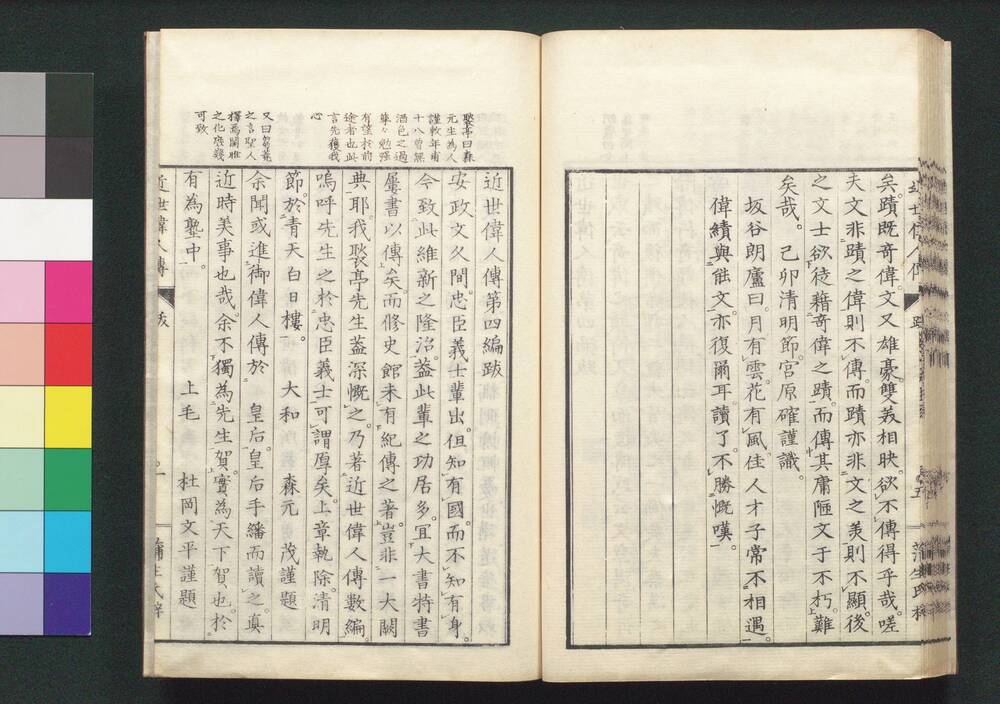 矣。蹟既奇偉。文又雄豪。雙美相映。欲不傳得乎哉。嗟
夫文非蹟之偉則不傳。而蹟亦非文之美則不顯。後
之文士欲徒藉奇偉之蹟。而傳其庸陋文于不朽。難
矣哉。 己卯清明節。宮原確謹識。
坂谷朗廬曰。月有雲。花有風。佳人才子常不相遇。
偉績與能文。亦復爾耳。讀了。不勝慨嘆。
近世偉人傳第四編跋
安政文久間。忠臣義士輩出。但知有國。而不知有身。
今致此維新之隆治。蓋此輩之功居多。宜大書特書
屢書以傳矣。而修史館未有紀傳之著。豈非一大闕
典耶。我褧亭先生蓋深慨之。乃著近世偉人傳數編。
嗚呼先生之於忠臣義士。可謂厚矣。上章執除。清明
節。於青天白日樓。 大和 森元 茂謹題
余聞或進御偉人傳於 皇后。皇后手繙而讀之。真
近時美事也哉。余不獨為先生賀。實為天下賀也。於
有為塾中。 上毛 杜岡文平謹題
褧亭曰森
元生為人
謹敕年甫
十八曾無
酒色之過
孳々勉强
有望於前
途者也此
言先獲我
心
又曰芻蕘
之言聖人
擇焉關雎
之化庶幾
可致
近世偉人傳 跋 一 蒲生氏梓